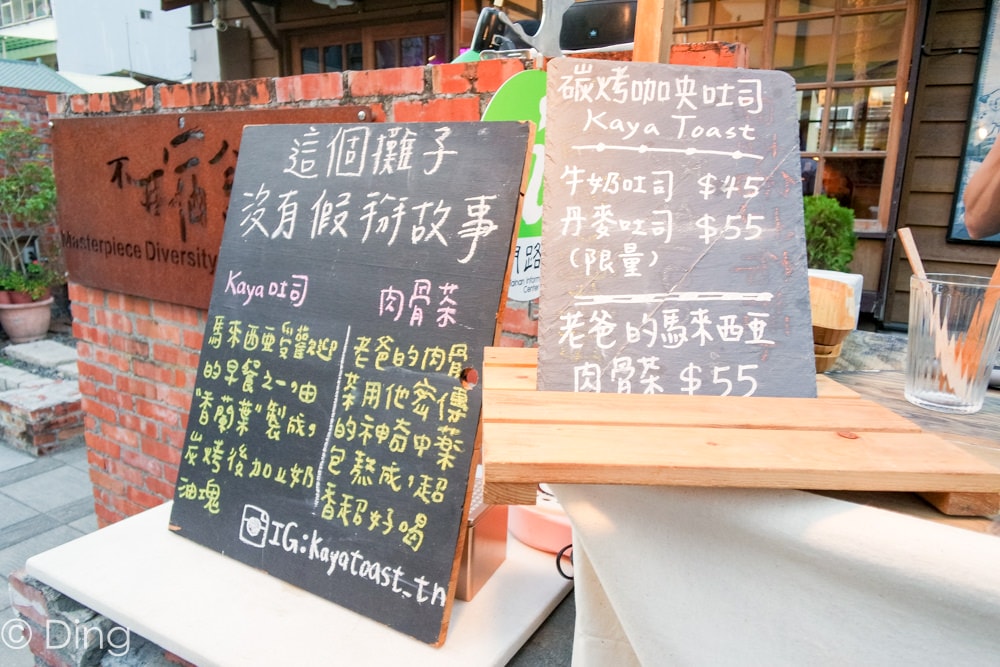 這個攤子
沒有假掰故事
Kaya吐司
馬來西亞受歡迎
的早餐之一，由
"香蘭葉"製成，
炭烤後加上奶
油塊
肉骨茶
老爸的肉骨
茶用他密傳
的神奇中藥
包熬成，超
香超好喝
IG:kayatoast_tn
碳烤咖央吐司
Kaya Toast
牛奶吐司 $45
丹麥吐司 $55
(限量)
老爸的馬來西亞
肉骨茶 $55
Masterpiece Diversity
Center
© Ding